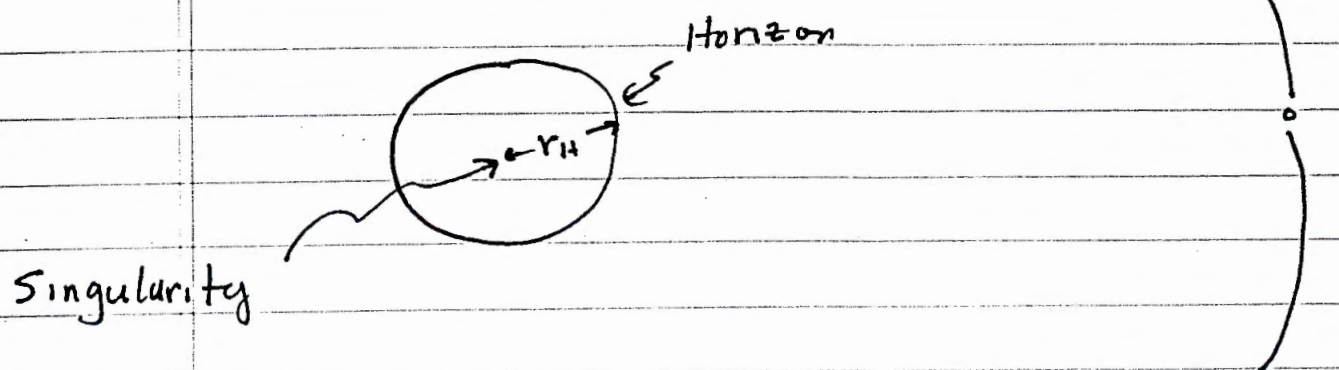 Horizon
r_H
Singularity